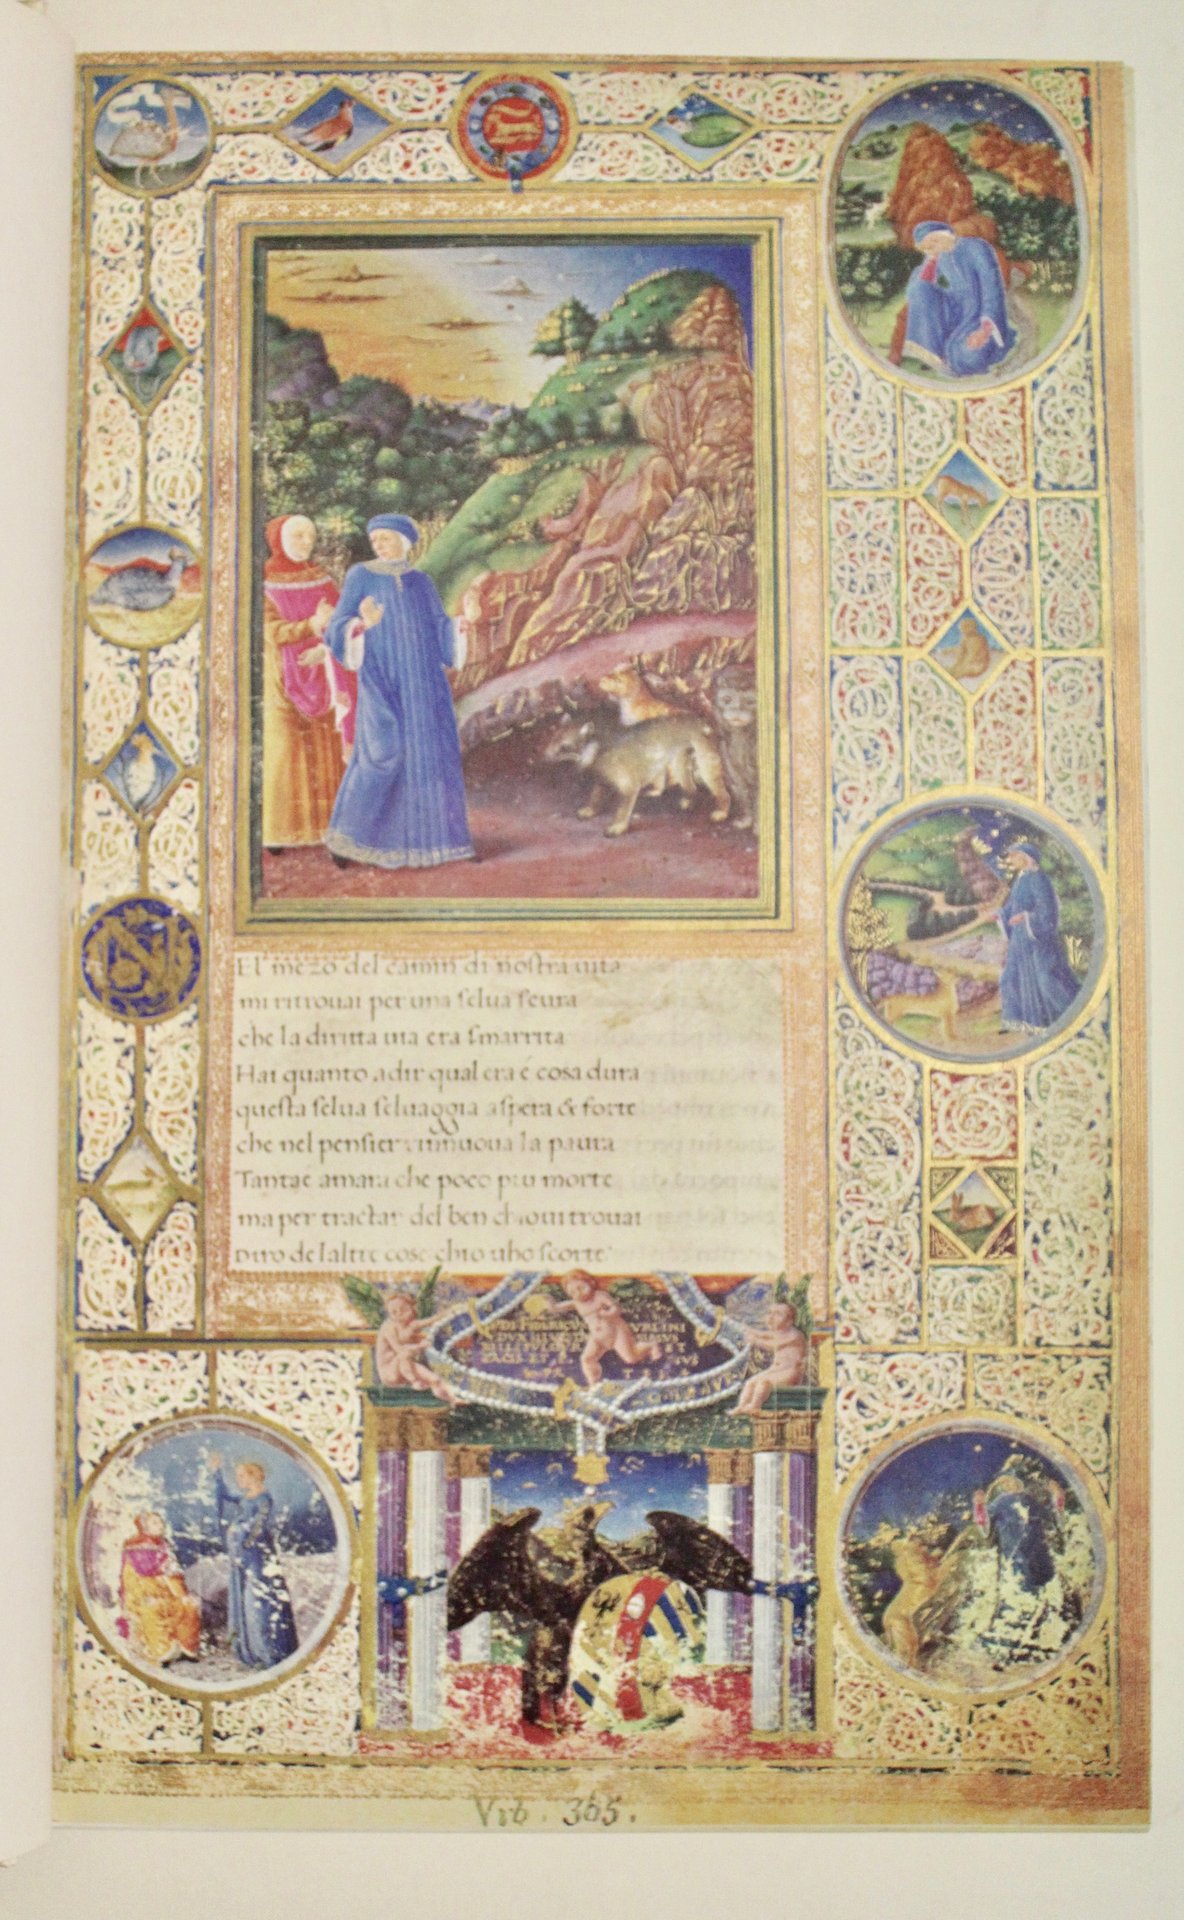 El mezo del camin di nostra uita
mi ritrouai per una selua scura
che la diritta uia era smarrita
Hai quanto adir qual era é cosa dura
questa selua seluaggia aspera & forte
che nel pensier rinnuoua la paura
Tant é amara che poco piu morte
ma per tractar del ben chio ui trouai
Diro de laltre cose chio uho scorte
Vrb. 365.